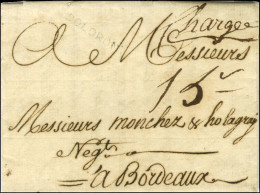 Chargée
A Messieurs
15
Messieurs monchez & holagray
Negts
à Bordeaux